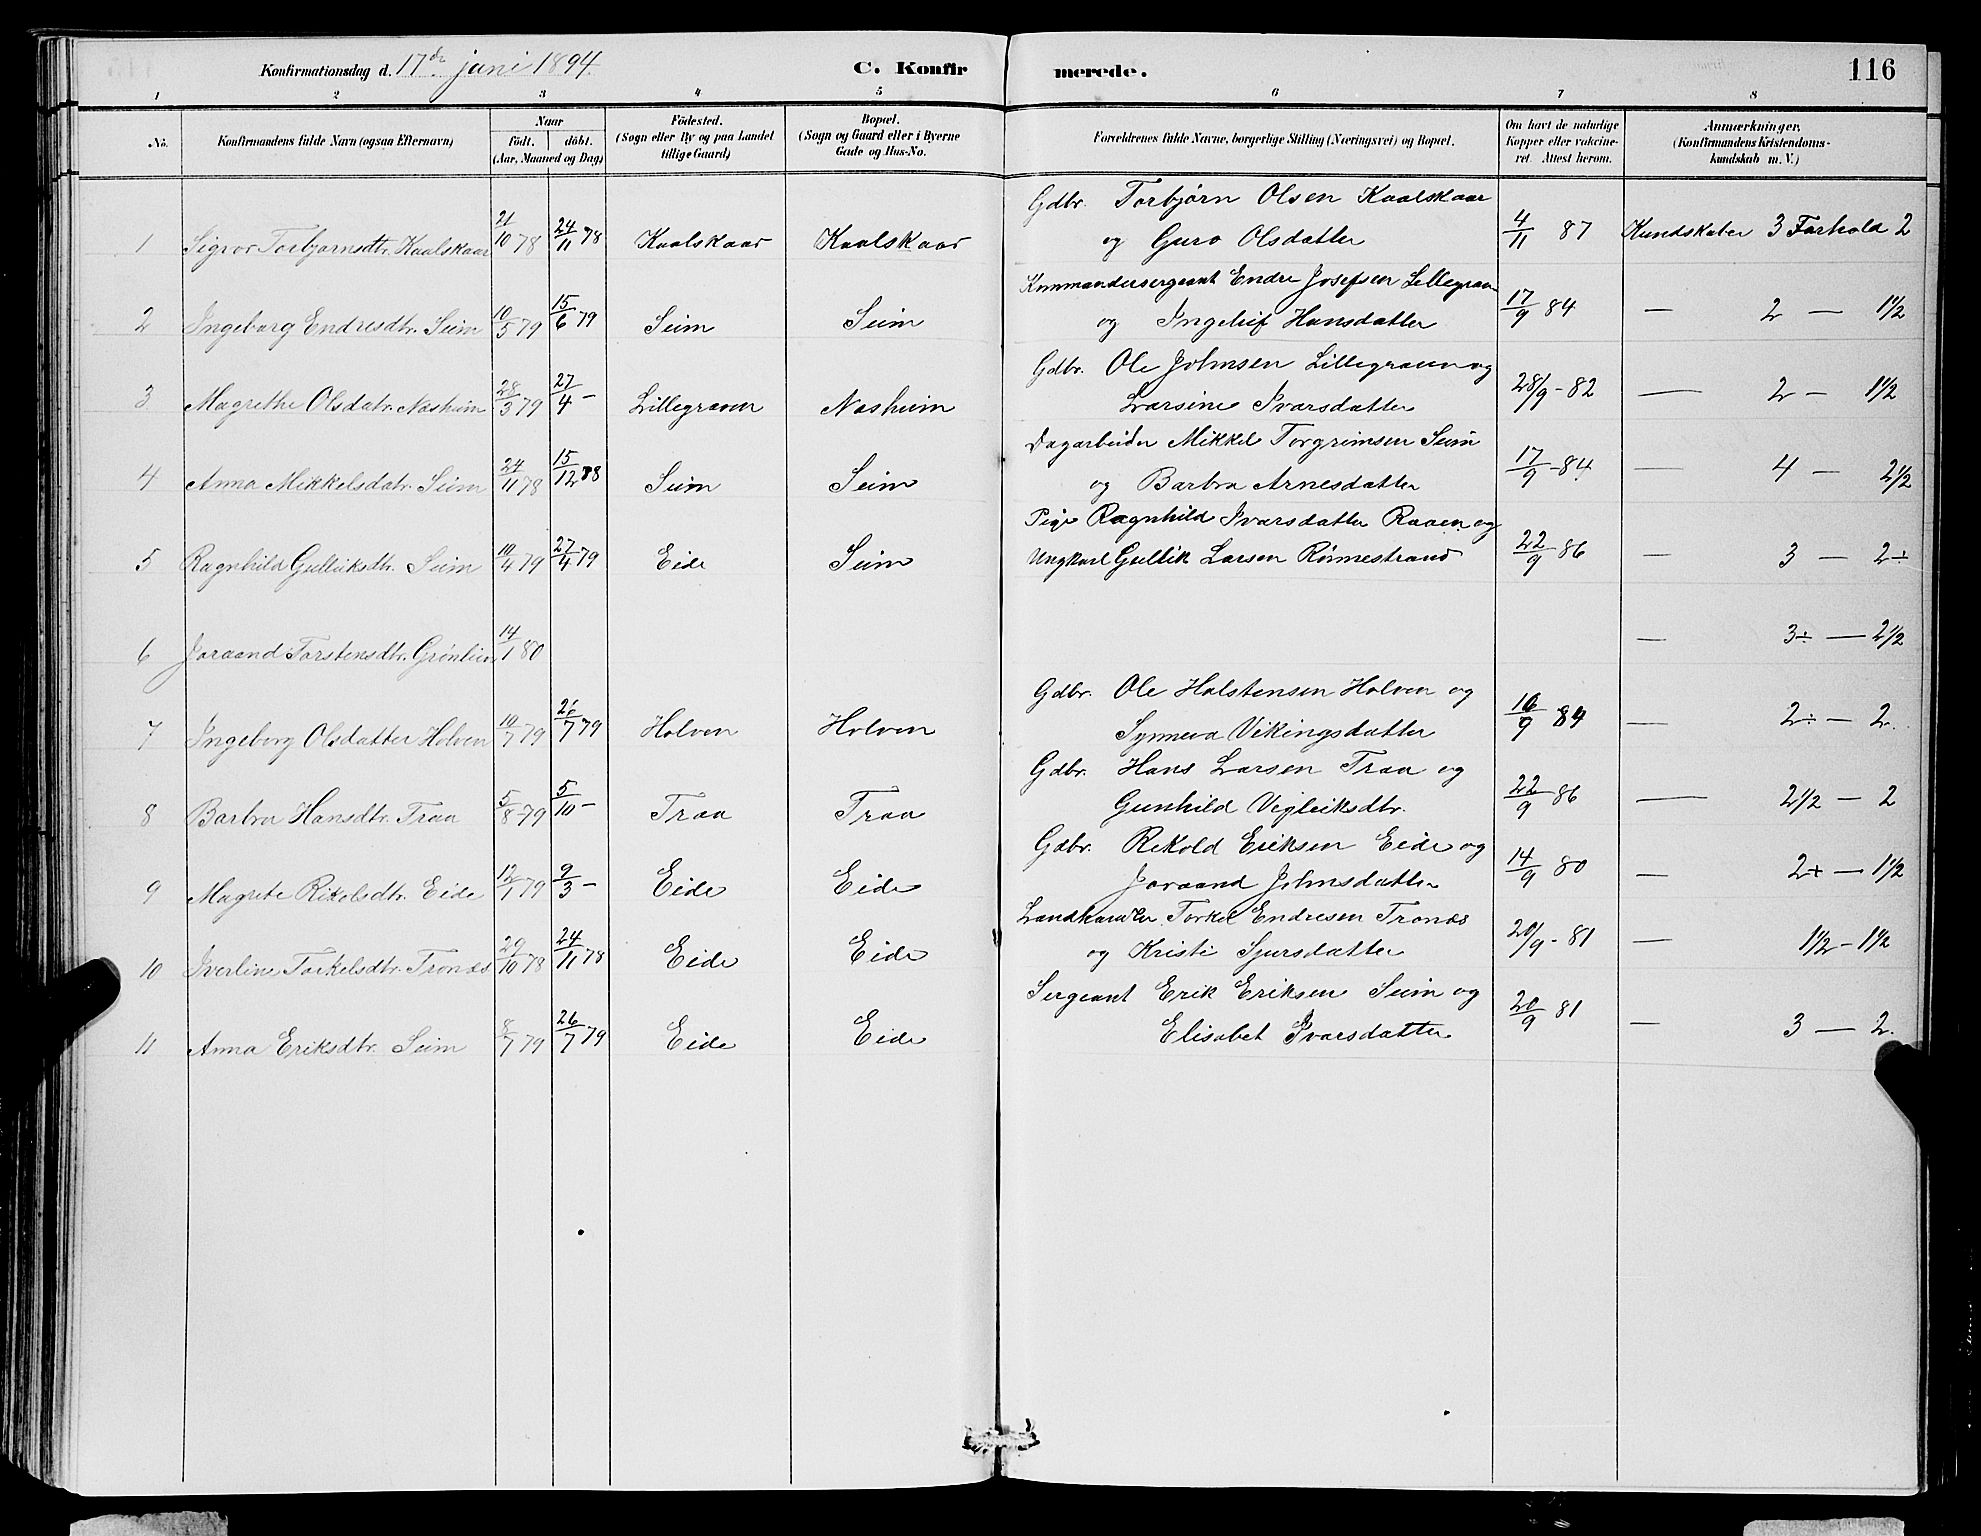 Konfirmationsdag d. 17de juni 1894. C. Konfirmerede. 116
1 2 3 4 5 6 7 8
No. Konfirmandens fulde Navn (ogsaa Efternavn) Naar födt. döbt. (Aar, Maaned og Dag) Födested. (Sogn eller By og paa Landet tillige Gaard) Bopæl. (Sogn og Gaard eller i Byerne Gade og Hus-No. Forældrenes fulde Navne, borgerlige Stilling (Næringsvei) og Bopæl. Om havt de naturlige Kopper eller vakcineret. Attest herom. Anmærkninger. (Konfirmandens Kristendomskundskab m. V.)
1 Sigvor Torbjørnsdtr. Kaalskaar 21/10 78 24/11 78 Kaalskaar Kaalskaar Gdbr. Torbjørn Olsen Kaalskaar
og Guro Olsdatter 4/11 87 Kundskaber 3 Forhold 2
2 Ingeborg Endresdtr. Seim 10/5 79 15/6 79 Seim Seim Kommandersergeant Endre Josefsen Lillegraven
og Ingelief Hansdatter 17/9 84 — 2 — 1 1/2
3 Magrethe Olsdatr. Næsheim 28/3 79 27/4 — Lillegraven Næsheim Gdbr. Ole Johnsen Lillegraven og
Larsine Ivarsdatter 28/9 - 82 — 2 — 1 1/2
4 Anna Mikkelsdatr. Seim 24/11 78 15/12 78 Seim Seim Dagarbeider Mikkel Torgrimsen Seim
og Barbra Arnesdatter 17/9 - 84 — 4 — 2 1/2
5 Ragnhild Gulliksdtr. Seim 10/4 79 27/4 79 Eide Seim Pige Ragnhild Ivarsdatter Raaen og
Ungkarl Gullik Larsen Rönnestrand 22/9 86 — 3 — 2÷
6 Joraand Torstensdtr. Grönlien 14/1 80 — 3÷ — 2 1/2
7 Ingeborg Olsdatter Holven 10/7 79 26/7 79 Holven Holven Gdbr. Ole Halstensen Holven og
Synneva Vikingsdatter 16/9 84 — 2÷ — 2.
8 Barbra Hansdtr. Traa 5/8 79 5/10 — Traa Traa Gdbr. Hans Larsen Traa og
Gunhild Vigleiksdtr. 22/9 86 — 2 1/2 — 2
9 Magrete Rikolsdtr. Eide 12/1 79 9/3 — Eide Eide Gdbr. Rikold Eriksen Eide og
Joraand Johnsdatter 14/9 80 — 2+ — 1 1/2
10 Iverline Torkelsdtr. Tronæs 29/10 78 24/11 78 Eide Eide Landhandler Torkel Endresen Tronæs
og Kristi Sjursdatter 20/9 - 81 — 1 1/2 - 1 1/2
11 Anna Eriksdtr. Seim 8/7 79 26/7 79 Eide Eide Sergeant Erik Eriksen Seim og
Elisabet Ivarsdatter 20/9 81 — 3 — 2.